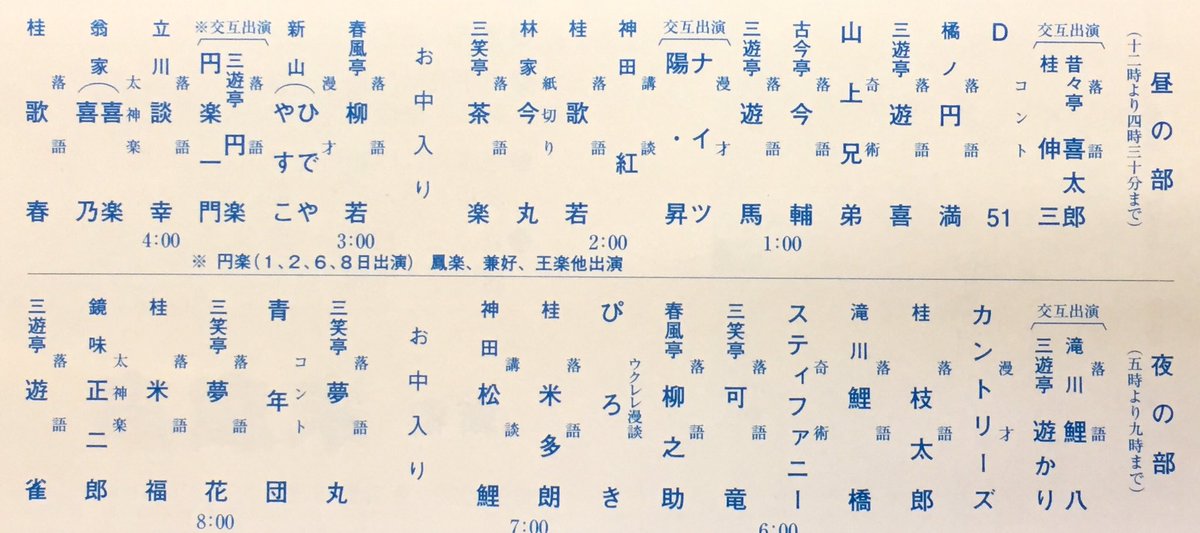 昼の部
(十二時より四時三十分まで)
交互出演
昔々亭 喜太郎 落語
桂 伸三
D51 コント
橘ノ円満 落語
三遊亭 遊喜 落語
山上兄弟 奇術
古今亭 今輔 落語
三遊亭 遊馬 落語
1:00
交互出演
ナイツ 漫才
陽・昇
神田 紅 講談
2:00
桂 歌若 落語
林家 今丸 紙切り
三笑亭 茶楽 落語
お中入り
春風亭 柳若 落語
3:00
新山(ひでや やすこ) 漫才
※交互出演
三遊亭 円楽 落語
円楽一門
立川 談幸 落語
4:00
翁家(喜楽 喜乃) 太神楽
桂 歌春 落語
※ 円楽(1、2、6、8日出演) 鳳楽、兼好、王楽他出演
夜の部
(五時より九時まで)
交互出演
滝川 鯉八 落語
三遊亭 遊かり
カントリーズ 漫才
桂 枝太郎 落語
滝川 鯉橋 落語
スティファニー 奇術
6:00
三笑亭 可竜 落語
春風亭 柳之助 落語
ぴろき ウクレレ漫談
桂 米多朗 落語
7:00
神田 松鯉 講談
お中入り
三笑亭 夢丸 落語
青年団 コント
三笑亭 夢花 落語
8:00
桂 米福 落語
鏡味 正二郎 太神楽
三遊亭 遊雀 落語